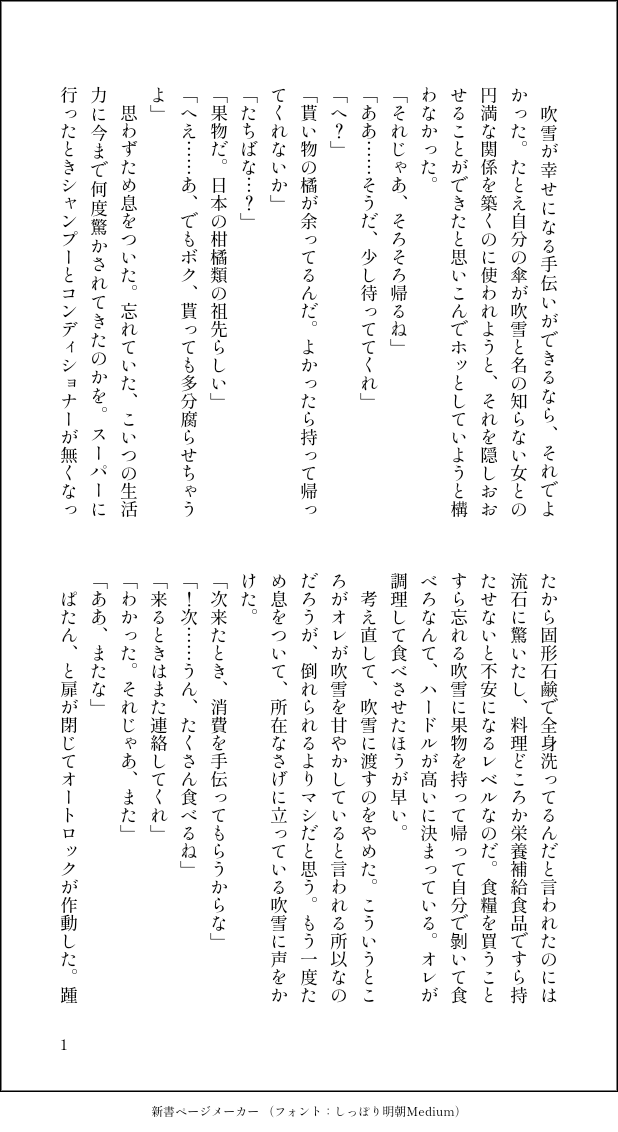 吹雪が幸せになる手伝いができるなら、それでよ
かった。たとえ自分の傘が吹雪と名の知らない女との
円満な関係を築くのに使われようと、それを隠しおお
せることができたと思いこんでホッとしていようと構
わなかった。
「それじゃあ、そろそろ帰るね」
「ああ……そうだ、少し待っててくれ」
「へ？」
「貰い物の橘が余ってるんだ。よかったら持って帰っ
てくれないか」
「たちばな…？」
「果物だ。日本の柑橘類の祖先らしい」
「へえ……あ、でもボク、貰っても多分腐らせちゃう
よ」
思わずため息をついた。忘れていた、こいつの生活
力に今まで何度驚かされてきたのかを。スーパーに
行ったときシャンプーとコンディショナーが無くなっ
たから固形石鹸で全身洗ってるんだと言われたのには
流石に驚いたし、料理どころか栄養補給食品ですら持
たせないと不安になるレベルなのだ。食糧を買うこと
すら忘れる吹雪に果物を持って帰って自分で剝いて食
べろなんて、ハードルが高いに決まっている。オレが
調理して食べさせたほうが早い。
考え直して、吹雪に渡すのをやめた。こういうとこ
ろがオレが吹雪を甘やかしていると言われる所以なの
だろうが、倒れられるよりマシだと思う。もう一度た
め息をついて、所在なさげに立っている吹雪に声をか
けた。
「次来たとき、消費を手伝ってもらうからな」
「！次……うん、たくさん食べるね」
「来るときはまた連絡してくれ」
「わかった。それじゃあ、また」
「ああ、またな」
ぱたん、と扉が閉じてオートロックが作動した。踵
1
新書ページメーカー（フォント：しっぽり明朝Medium）